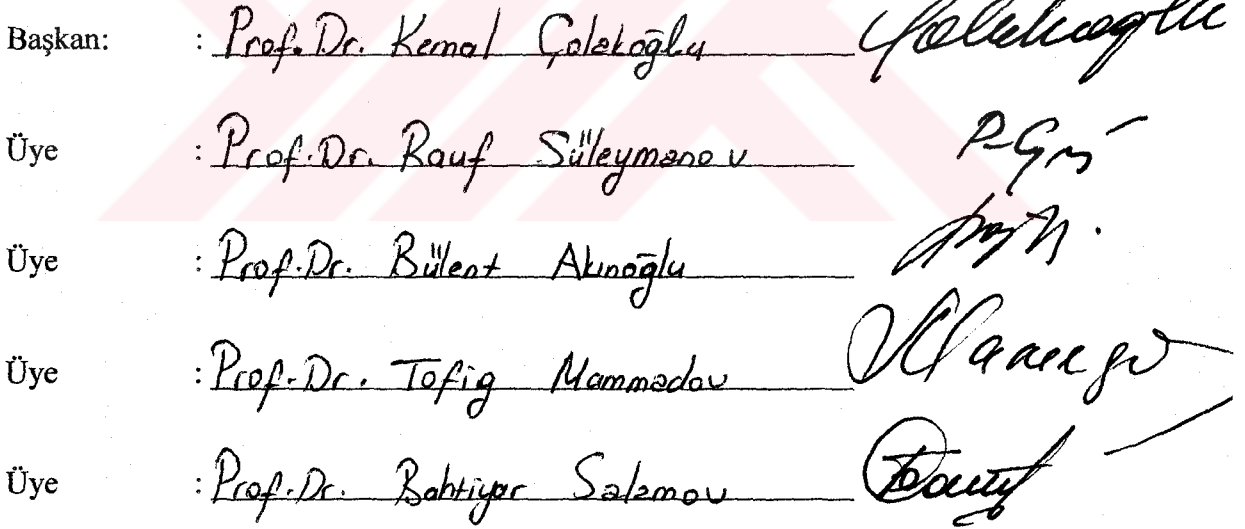 Başkan: : Prof. Dr. Kemal Çolakoğlu
Üye : Prof. Dr. Rauf Süleymanov
Üye : Prof. Dr. Bülent Akınoğlu
Üye : Prof. Dr. Tofig Mammadov
Üye : Prof. Dr. Bahtiyar Salamov